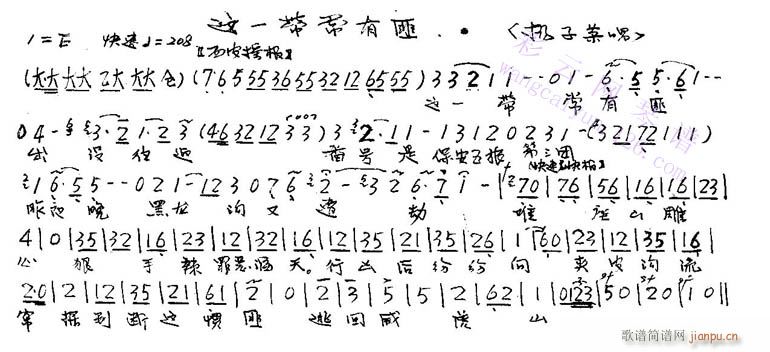 这一带常有匪
<杨子荣唱>
1=E 快速♩=208 【西皮摇板】
(大大 大大 乙大 大大 仓) (765 5535 3655 3212 6555) 3 3 2 1 1 - - 0 1 - 6·5 5·6 1 - -
这一带 常有匪
0 4 - 3·2 1·2 3 (46 3212 3 3) 3 2·1 1 - 1 3 1 2 0 2 3 1 - (321 72 111)
出没往返 番号是保安五旅第三团
【快速快板】
1 6·5 5 - - 0 2 1 - 12 3 0 7 6 2 - 3 2 6·7 1 - | 70 | 76 | 56 | 16 | 16 | 23 |
昨夜晚黑龙沟又遭劫 唯座山雕
4 | 0 | 35 | 32 | 16 | 23 | 12 | 32 | 16 | 12 | 35 | 21 | 35 | 26 | 1 | 60 | 23 | 12 | 35 | 16 |
心狠手辣罪恶滔天。行凶后纷纷向夹皮沟流
2·0 | 2 | 12 | 35 | 21 | 61 | 2 | 0 | 2 | 3 | 5 | 5 | 2 | 62 | 1 | 1 | 0123 | 50 | 20 | 10 ||
窜 据判断这惯匪逃回威虎山
彩云网琴谱
歌谱简谱网
jianpu.cn